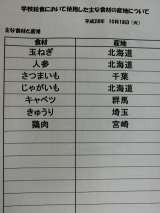 学校給食において使用した主な食材の産地について
平成28年 10月18日（火）
主な食材と産地
食材 産地
玉ねぎ 北海道
人参 北海道
さつまいも 千葉
じゃがいも 北海道
キャベツ 群馬
きゅうり 埼玉
鶏肉 宮崎